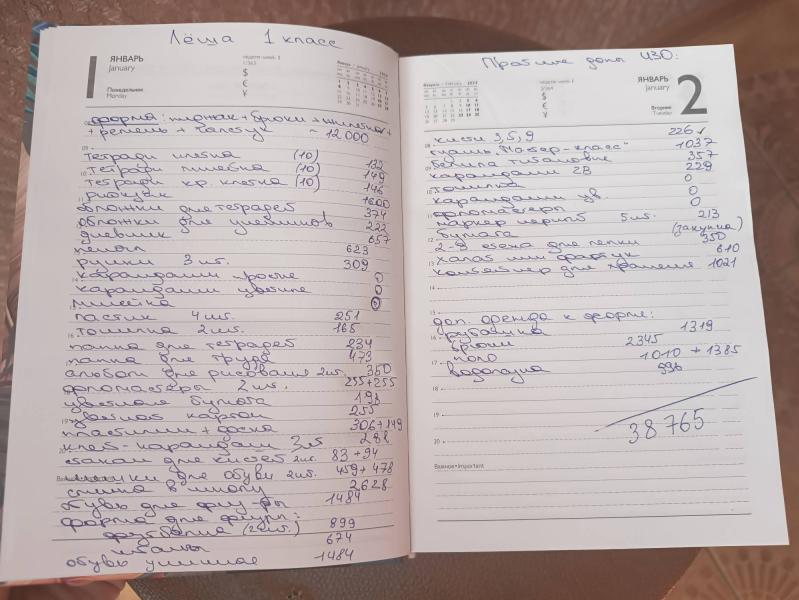 Лёша 1 класс
ЯНВАРЬ
January
Понедельник
Monday
$
€
¥
форма: пиджак + брюки + жилетка +
+ ремень + галстук ~ 12 000
Тетради клетка (10) 132
Тетради линейка (10) 149
тетради кр. клетка (10) 146
рюкзак 1600
обложки для тетрадей 374
обложки для учебников 222
дневник 657
пенал 623
ручки 3 шт. 309
карандаши простые 0
карандаши цветные 0
линейка 0
ластик 4 шт. 251
точилка 2 шт. 165
папка для тетрадей 234
папка для труда 473
альбом для рисования 2 шт. 350
фломастеры 2 шт. 255+255
цветная бумага 196
цветной картон 255
пластилин + доска 306+149
клей-карандаш 3 шт 288
стакан для кистей 2 шт. 83+94
мешки для обуви 2 шт. 459+478
сменка в школу 2628
обувь для физ-ры 1484
форма для физры:
футболка (2 шт.) 899
штаны 674
обувь уличная 1484
Важное•Important
ЯНВАРЬ
January
2
Вторник
Tuesday
$
€
¥
кисти 3, 5, 9 226
гуашь "Мастер-класс" 1037
белила титановые 357
карандаши 2В 229
точилка 0
карандаши цв. 0
фломастеры 0
маркер черный 5 шт. 213
бумага (закупка)
2-я стека для лепки 350
халат или фартук 610
контейнер для хранения 1021
доп. одежда к форме:
рубашка 1319
брюки 2345
поло 1010 + 1385
водолазка 996
38 765
Важное•Important